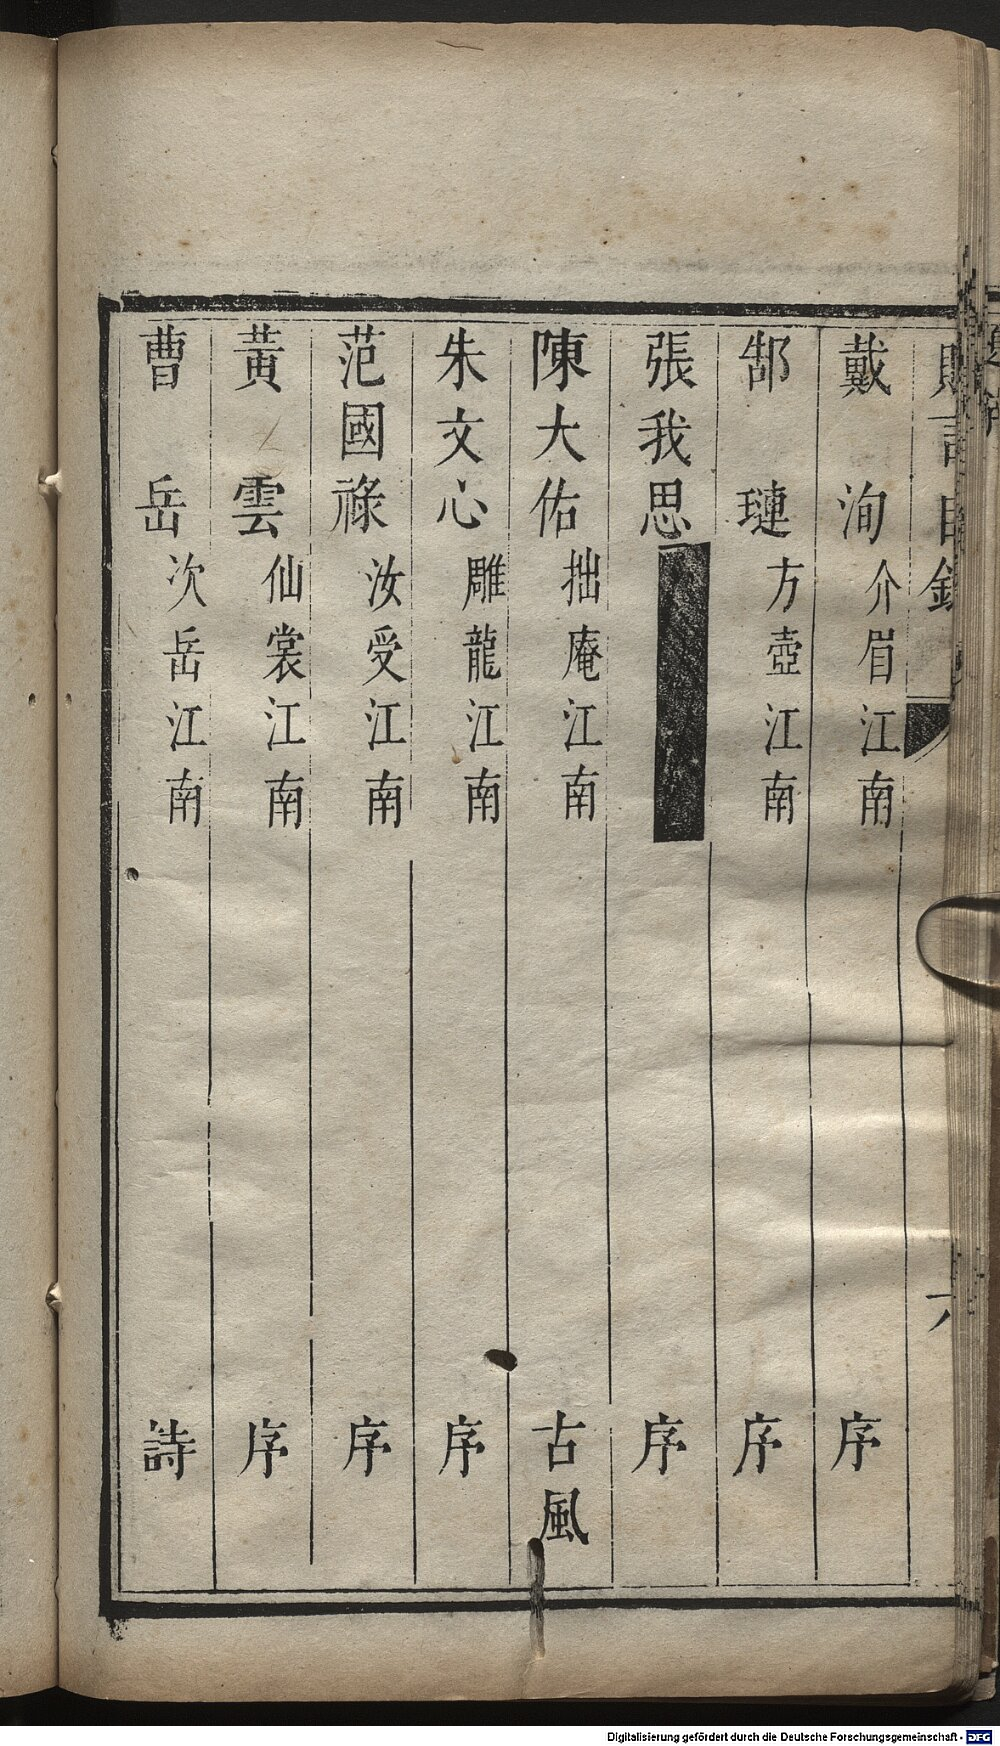 贈言目錄
戴洵介眉江南序
郜璉方壺江南序
張我思序
陳大佑拙庵江南古風
朱文心雕龍江南序
范國祿汝受江南序
黃雲仙裳江南序
曹岳次岳江南詩
Digitalisierung gefördert durch die Deutsche Forschungsgemeinschaft - DFG